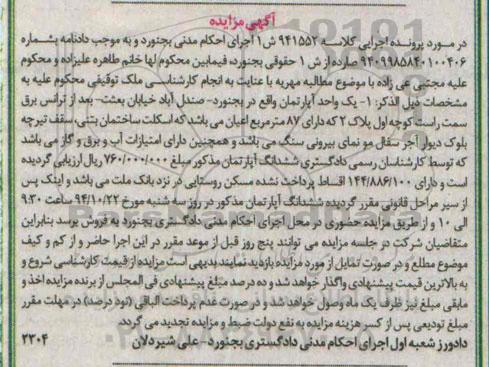 آگهی مزایده
در مورد پرونده اجرایی کلاسه ۹۴۱۵۵۲ ش ۱ اجرای احکام مدنی بجنورد و به موجب دادنامه بشماره
۹۴۰۹۹۸۵۸۴۰۱۰۰۴۰۶ صادره از ش ۱ حقوقی بجنورد، فیمابین محکوم لها خانم طاهره علیزاده و محکوم
علیه مجتبی عی زاده با موضوع مطالبه مهریه با عنایت به انجام کارشناسی ملک توقیفی محکوم علیه به
مشخصات ذیل الذکر: ۱- یک واحد آپارتمان واقع در بجنورد- صندل آباد خیابان بعثت- بعد از ترانس برق
سمت راست کوچه اول پلاک ۲ که دارای ۸۷ مترمربع اعیان می باشد که اسکلت ساختمان بتنی، سقف تیرچه
بلوک دیوار آجر سفال مو نمای بیرونی سنگ می باشد و همچنین دارای امتیازات آب و برق و گاز می باشد
که توسط کارشناسان رسمی دادگستری ششدانگ آپارتمان مذکور مبلغ ۷۶۰/۰۰۰/۰۰۰ ریال ارزیابی گردیده
است و دارای ۱۴۴/۸۸۶/۱۰۰ اقساط پرداخت نشده مسکن روستایی در نزد بانک ملت می باشد و اینک پس
از سیر مراحل قانونی مقرر گردیده ششدانگ آپارتمان مذکور در روز سه شنبه مورخ ۹۴/۱۰/۲۲ ساعت ۹:۳۰
الی ۱۰ و از طریق مزایده حضوری در محل اجرای احکام مدنی دادگستری بجنورد به فروش برسد بنابراین
متقاضیان شرکت در جلسه مزایده می توانند پنج روز قبل از موعد مقرر در این اجرا حاضر و از کم و کیف
موضوع مطلع و در صورت تمایل از مورد مزایده بازدید نمایند بدیهی است مزایده از قیمت کارشناسی شروع و
به بالاترین قیمت پیشنهادی واگذار خواهد شد و ده درصد مبلغ پیشنهادی فی المجلس از برنده مزایده اخذ و
مابقی مبلغ نیز ظرف یک ماه وصول خواهد شد و در صورت عدم پرداخت الباقی (نود درصد) در مهلت مقرر
مبلغ تودیعی پس از کسر هزینه مزایده به نفع دولت ضبط و مزایده تجدید می گردد.
دادورز شعبه اول اجرای احکام مدنی دادگستری بجنورد- علی شیردلان ۲۳۰۴